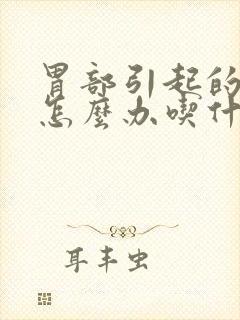 胃部引起的
怎麼办喫什
耳丰虫